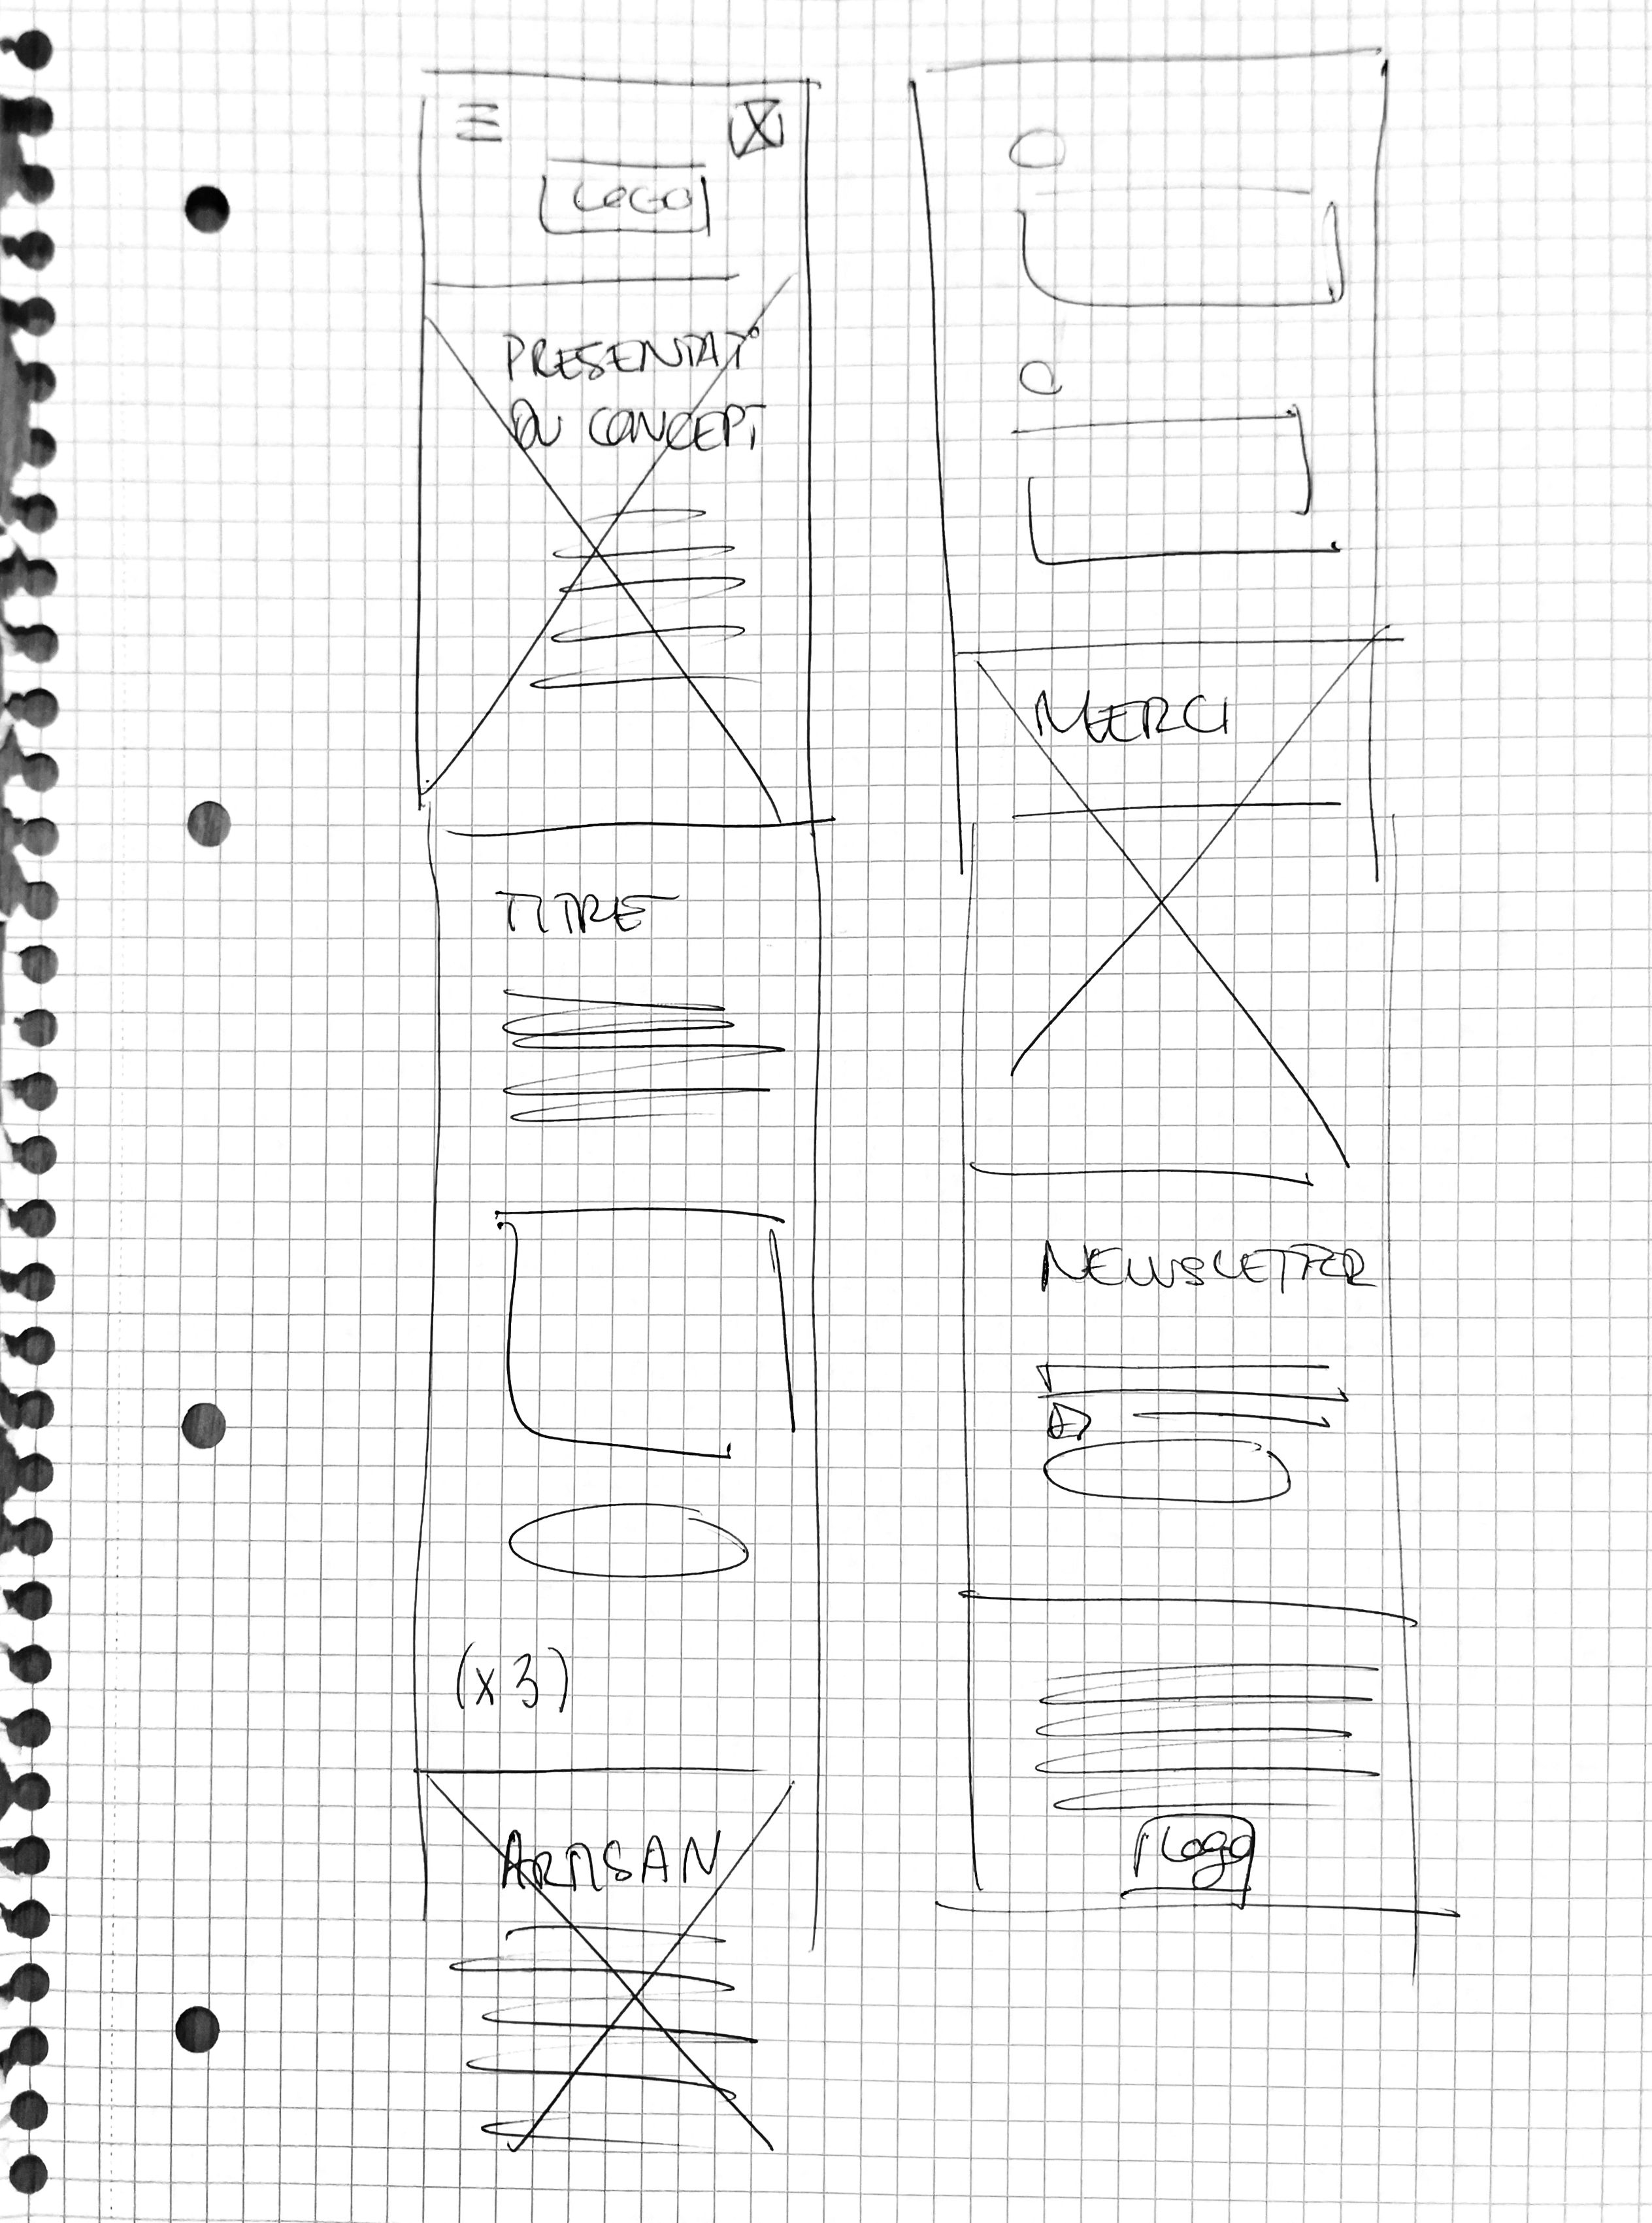 LOGO
PRESENTAT°
DU CONCEPT
TITRE
(x3)
ARTISAN
MERCI
NEWSLETTER
Logo